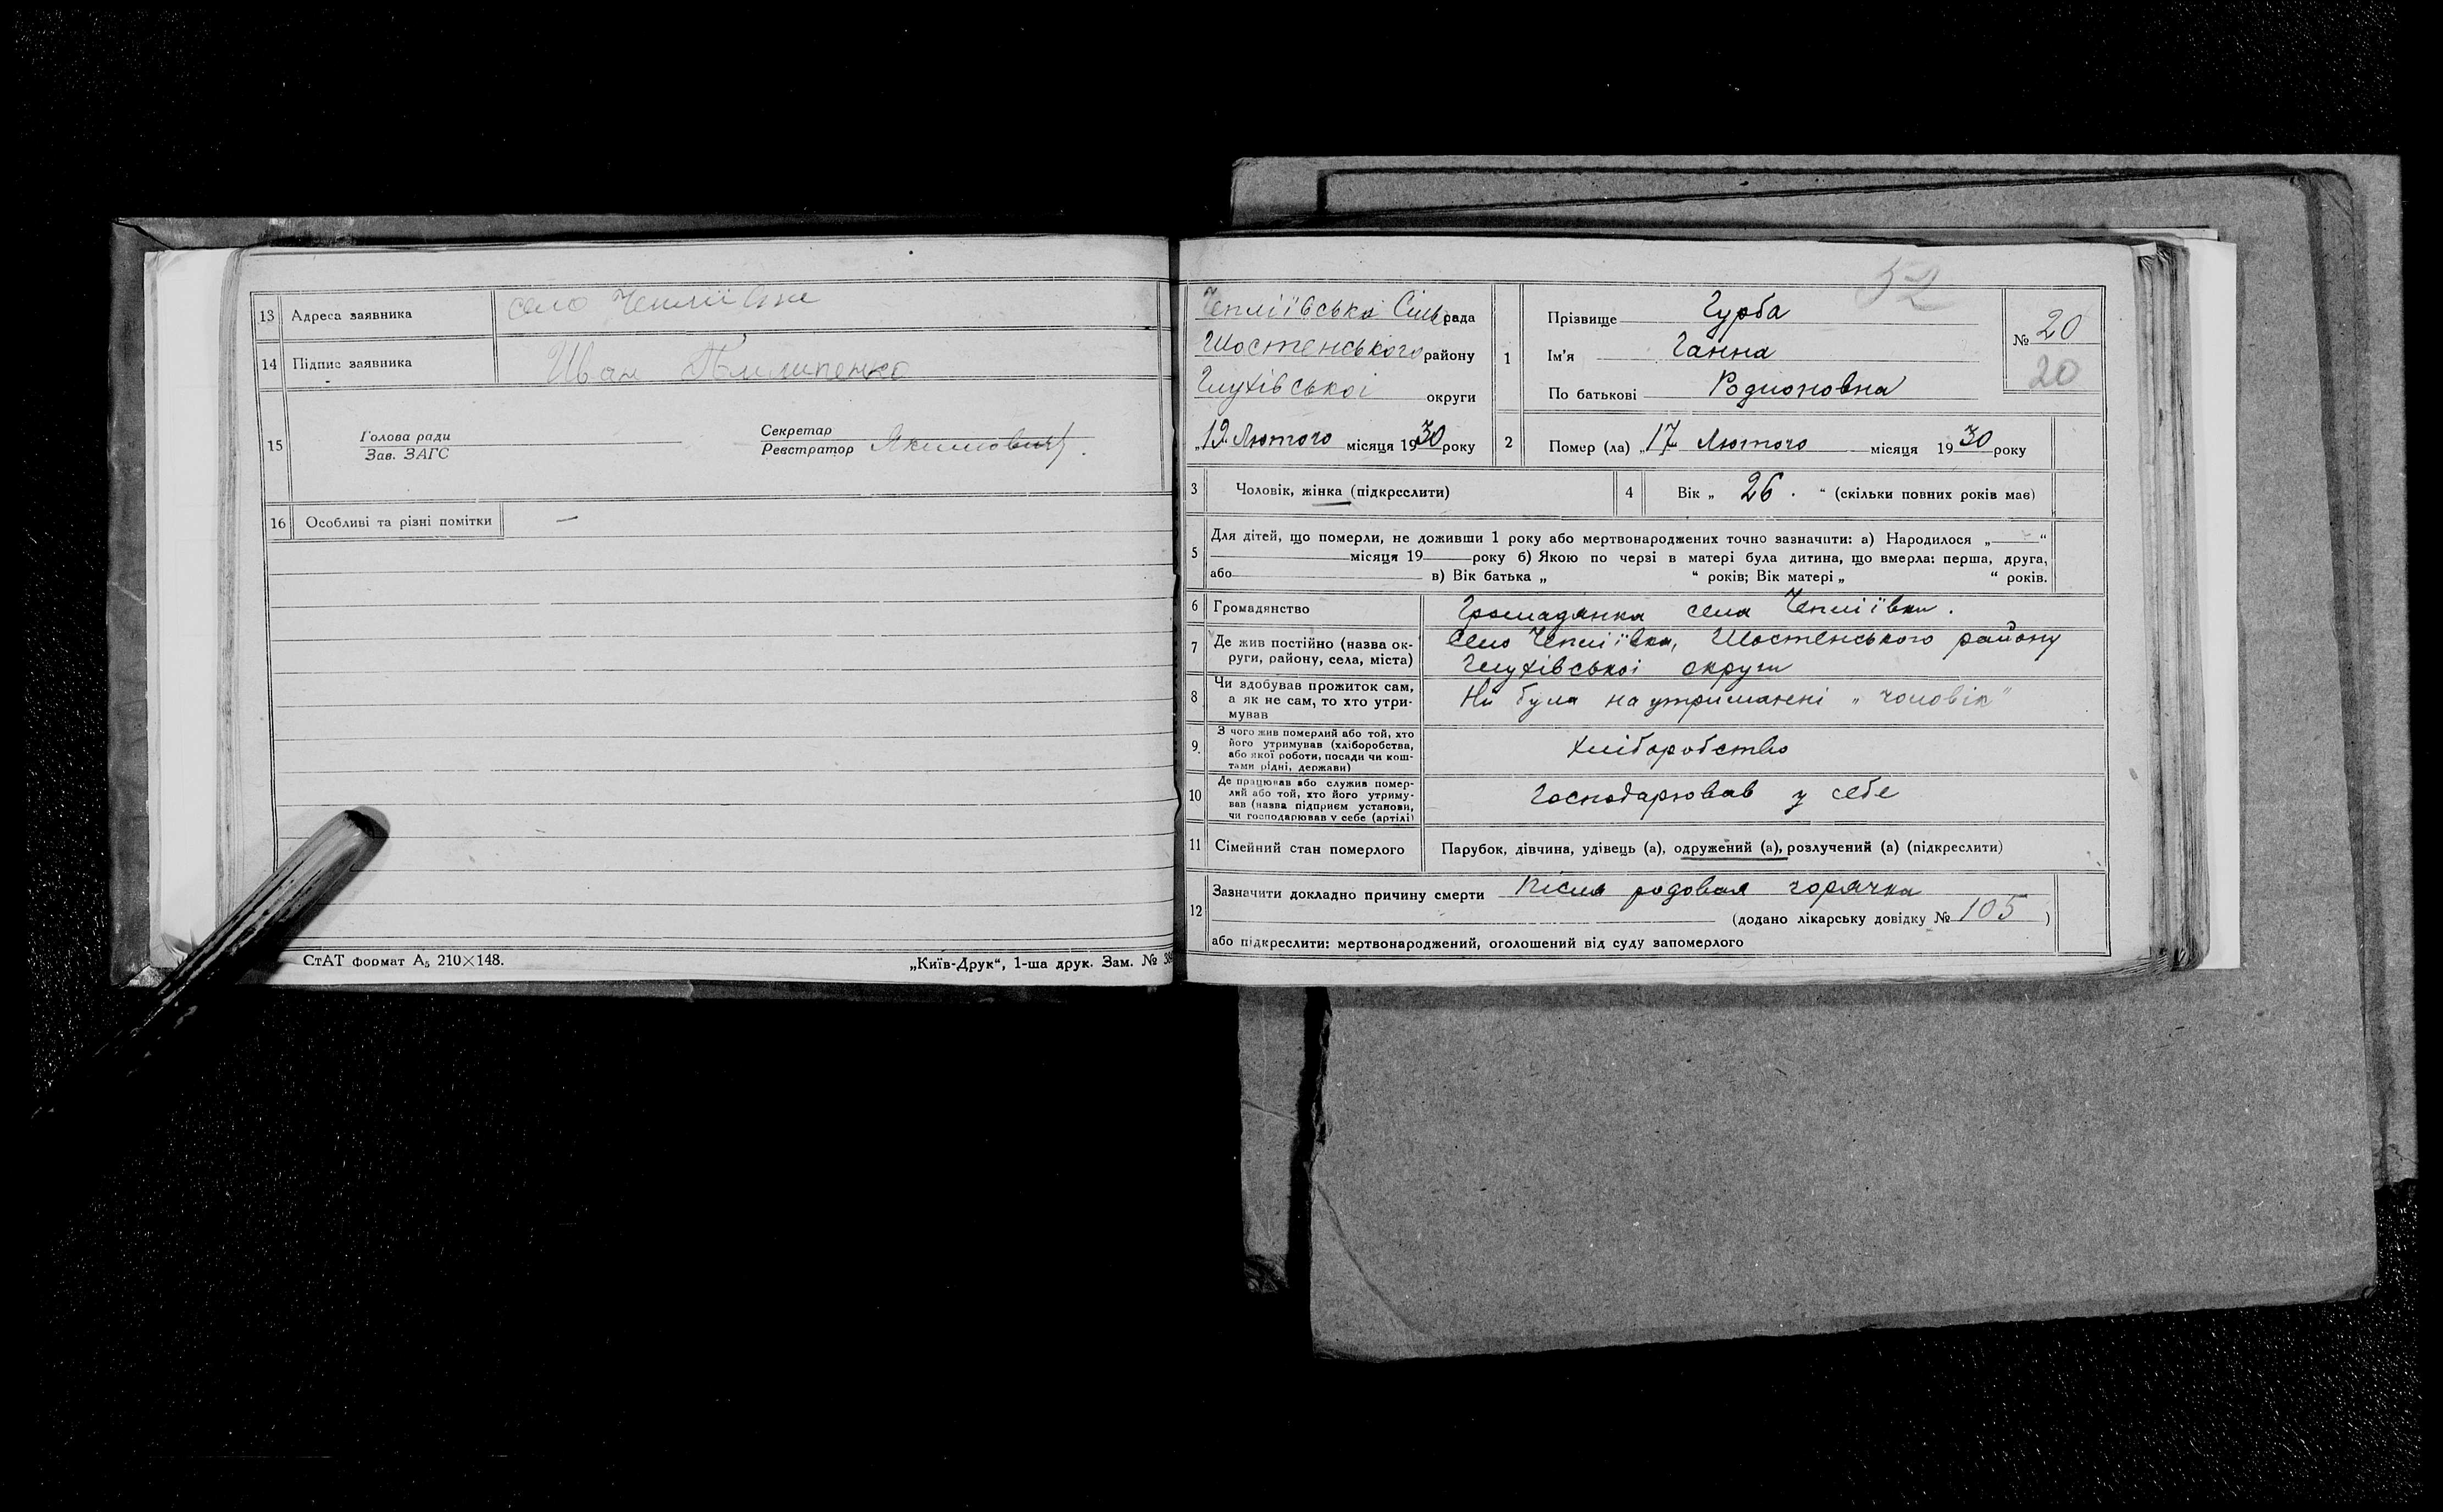 13 Адреса заявника село Чепліївка
14 Підпис заявника Иван Пилипенко
15 Голова ради
Зав. ЗАГС
Секретар
Реєстратор Якимович
16 Особливі та різні помітки —
СтАТ формат А5 210×148. „Київ-Друк“, 1-ша друк. Зам. №
52
Чепліївська Сільрада
Шостенського району
Глухівської округи
„19 Лютого місяця 1930 року
1 Прізвище Гурба
Ім'я Ганна
По батькові Родионовна
№ 20
20
2 Помер (ла) „17 Лютого місяця 1930 року
3 Чоловік, жінка (підкреслити)
4 Вік „ 26 . “ (скільки повних років має)
5 Для дітей, що померли, не доживши 1 року або мертвонароджених точно зазначити: а) Народилося „ “
місяця 19 року б) Якою по черзі в матері була дитина, що вмерла: перша, друга,
або в) Вік батька „ “ років; Вік матері „ “ років.
6 Громадянство Громадянка села Чепліївки.
7 Де жив постійно (назва ок-
руги, району, села, міста)
Село Чепліївка, Шостенського району
Глухівської округи
8 Чи здобував прожиток сам,
а як не сам, то хто утри-
мував
Ні була на утриманені „чоловік”
9. З чого жив померлий або той, хто
його утримував (хліборобства,
або якої роботи, посади чи кош-
тами рідні, держави)
Хліборобство
10 Де працював або служив помер-
лий або той, хто його утриму-
вав (назва підприєм установи,
чи господарював у себе (артілі)
Господарював у себе
11 Сімейний стан померлого Парубок, дівчина, удівець (а), одружений (а), розлучений (а) (підкреслити)
12 Зазначити докладно причину смерти Після родовая горячка
(додано лікарську довідку № 105 )
або підкреслити: мертвонароджений, оголошений від суду запомерлого